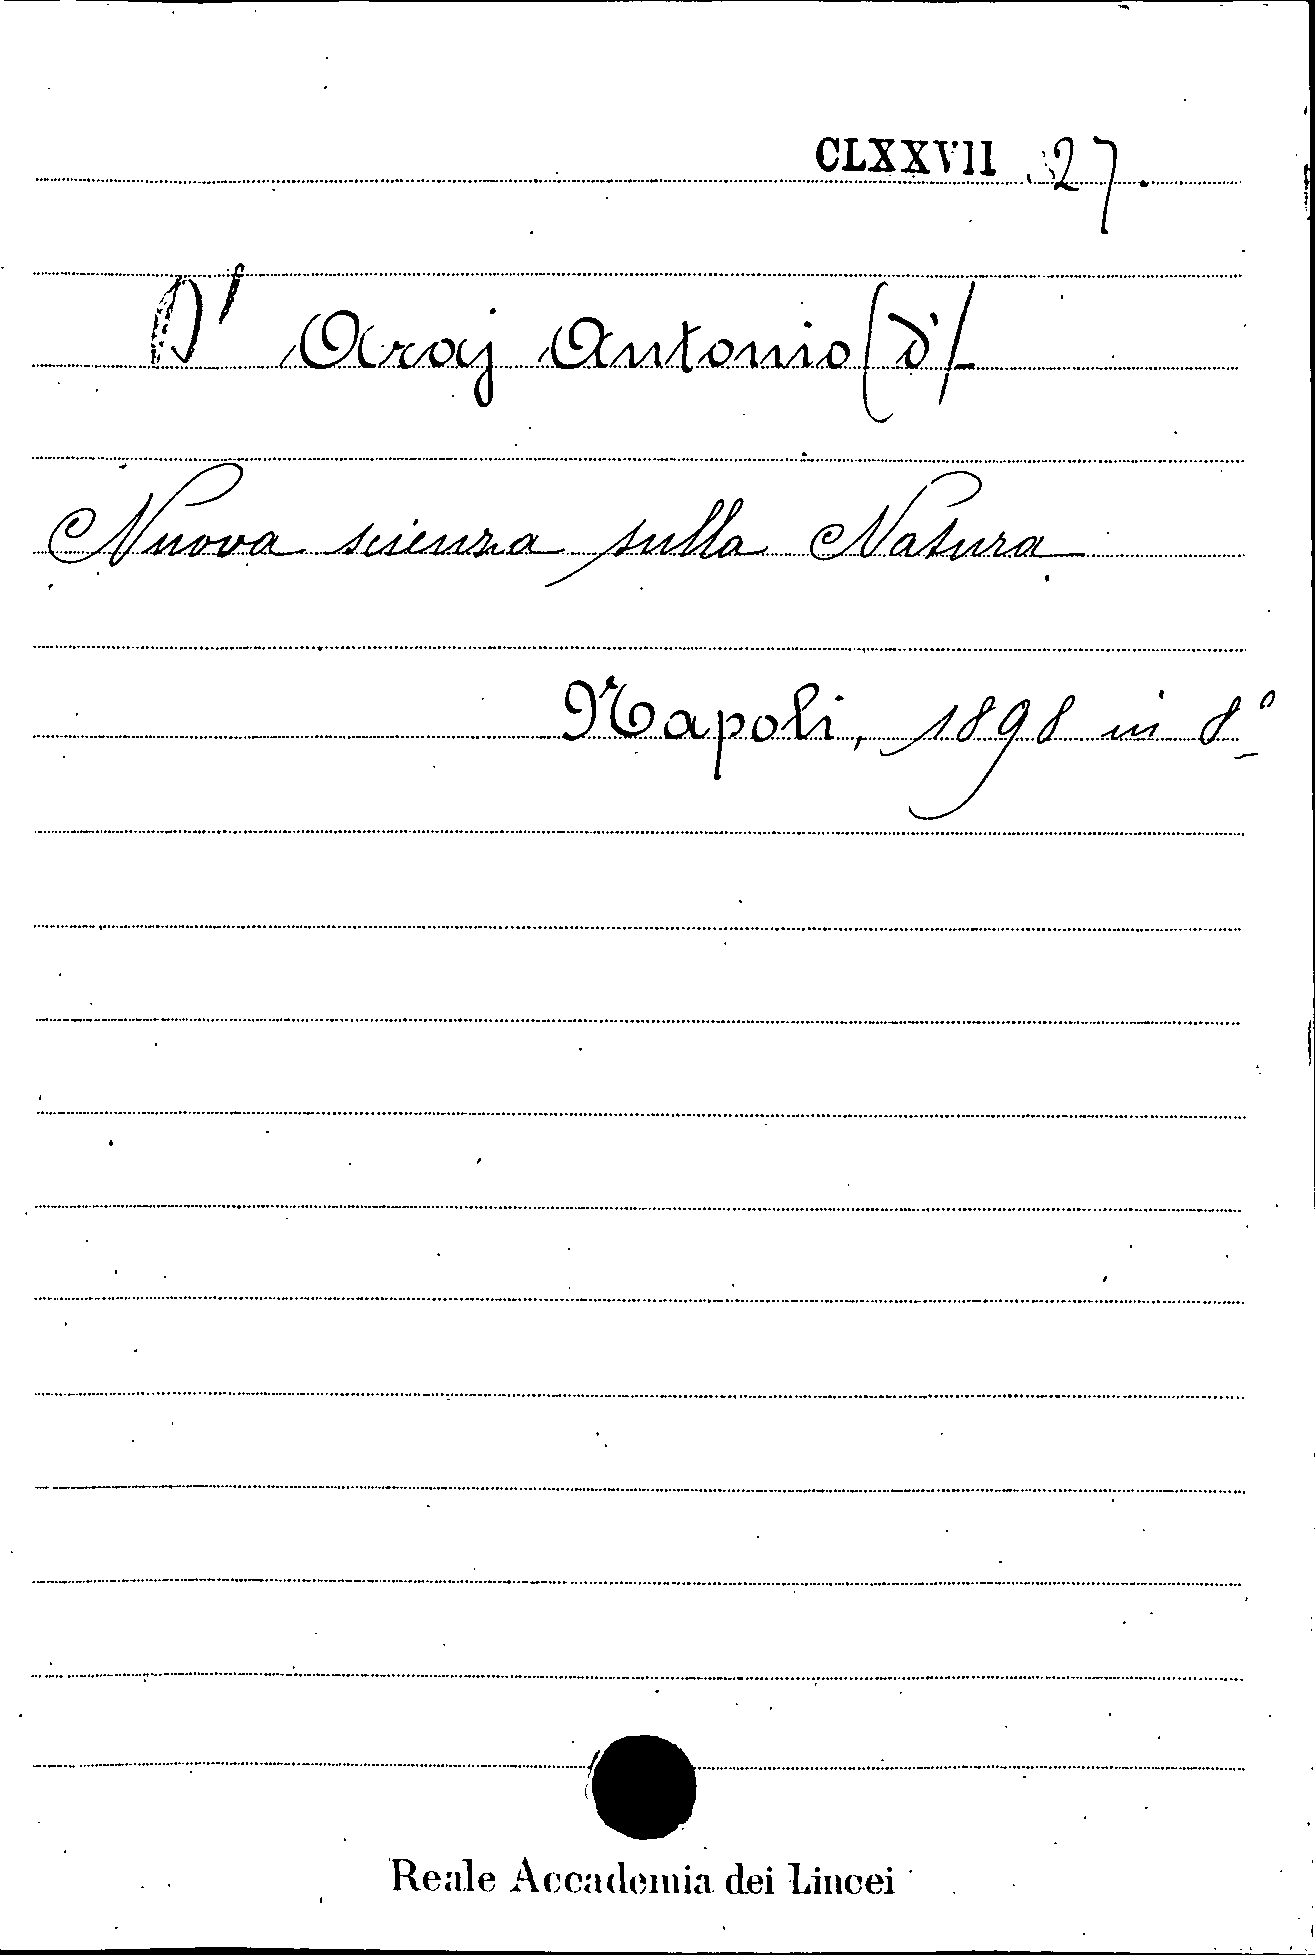 CLXXVII 27.
D' Aroj Antonio (d')
Nuova scienza sulla Natura
Napoli, 1898 in 8º
Reale Accademia dei Lincei